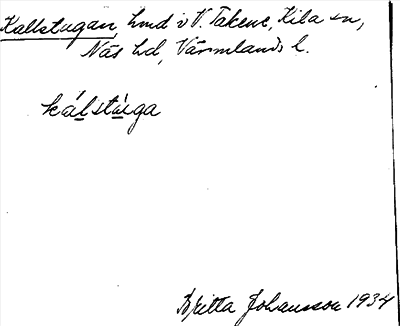 Kallstugan, hmd i V. Takene, Kila sn,
Näs hd, Värmlands l.
kálstùga
Britta Johansson 1934